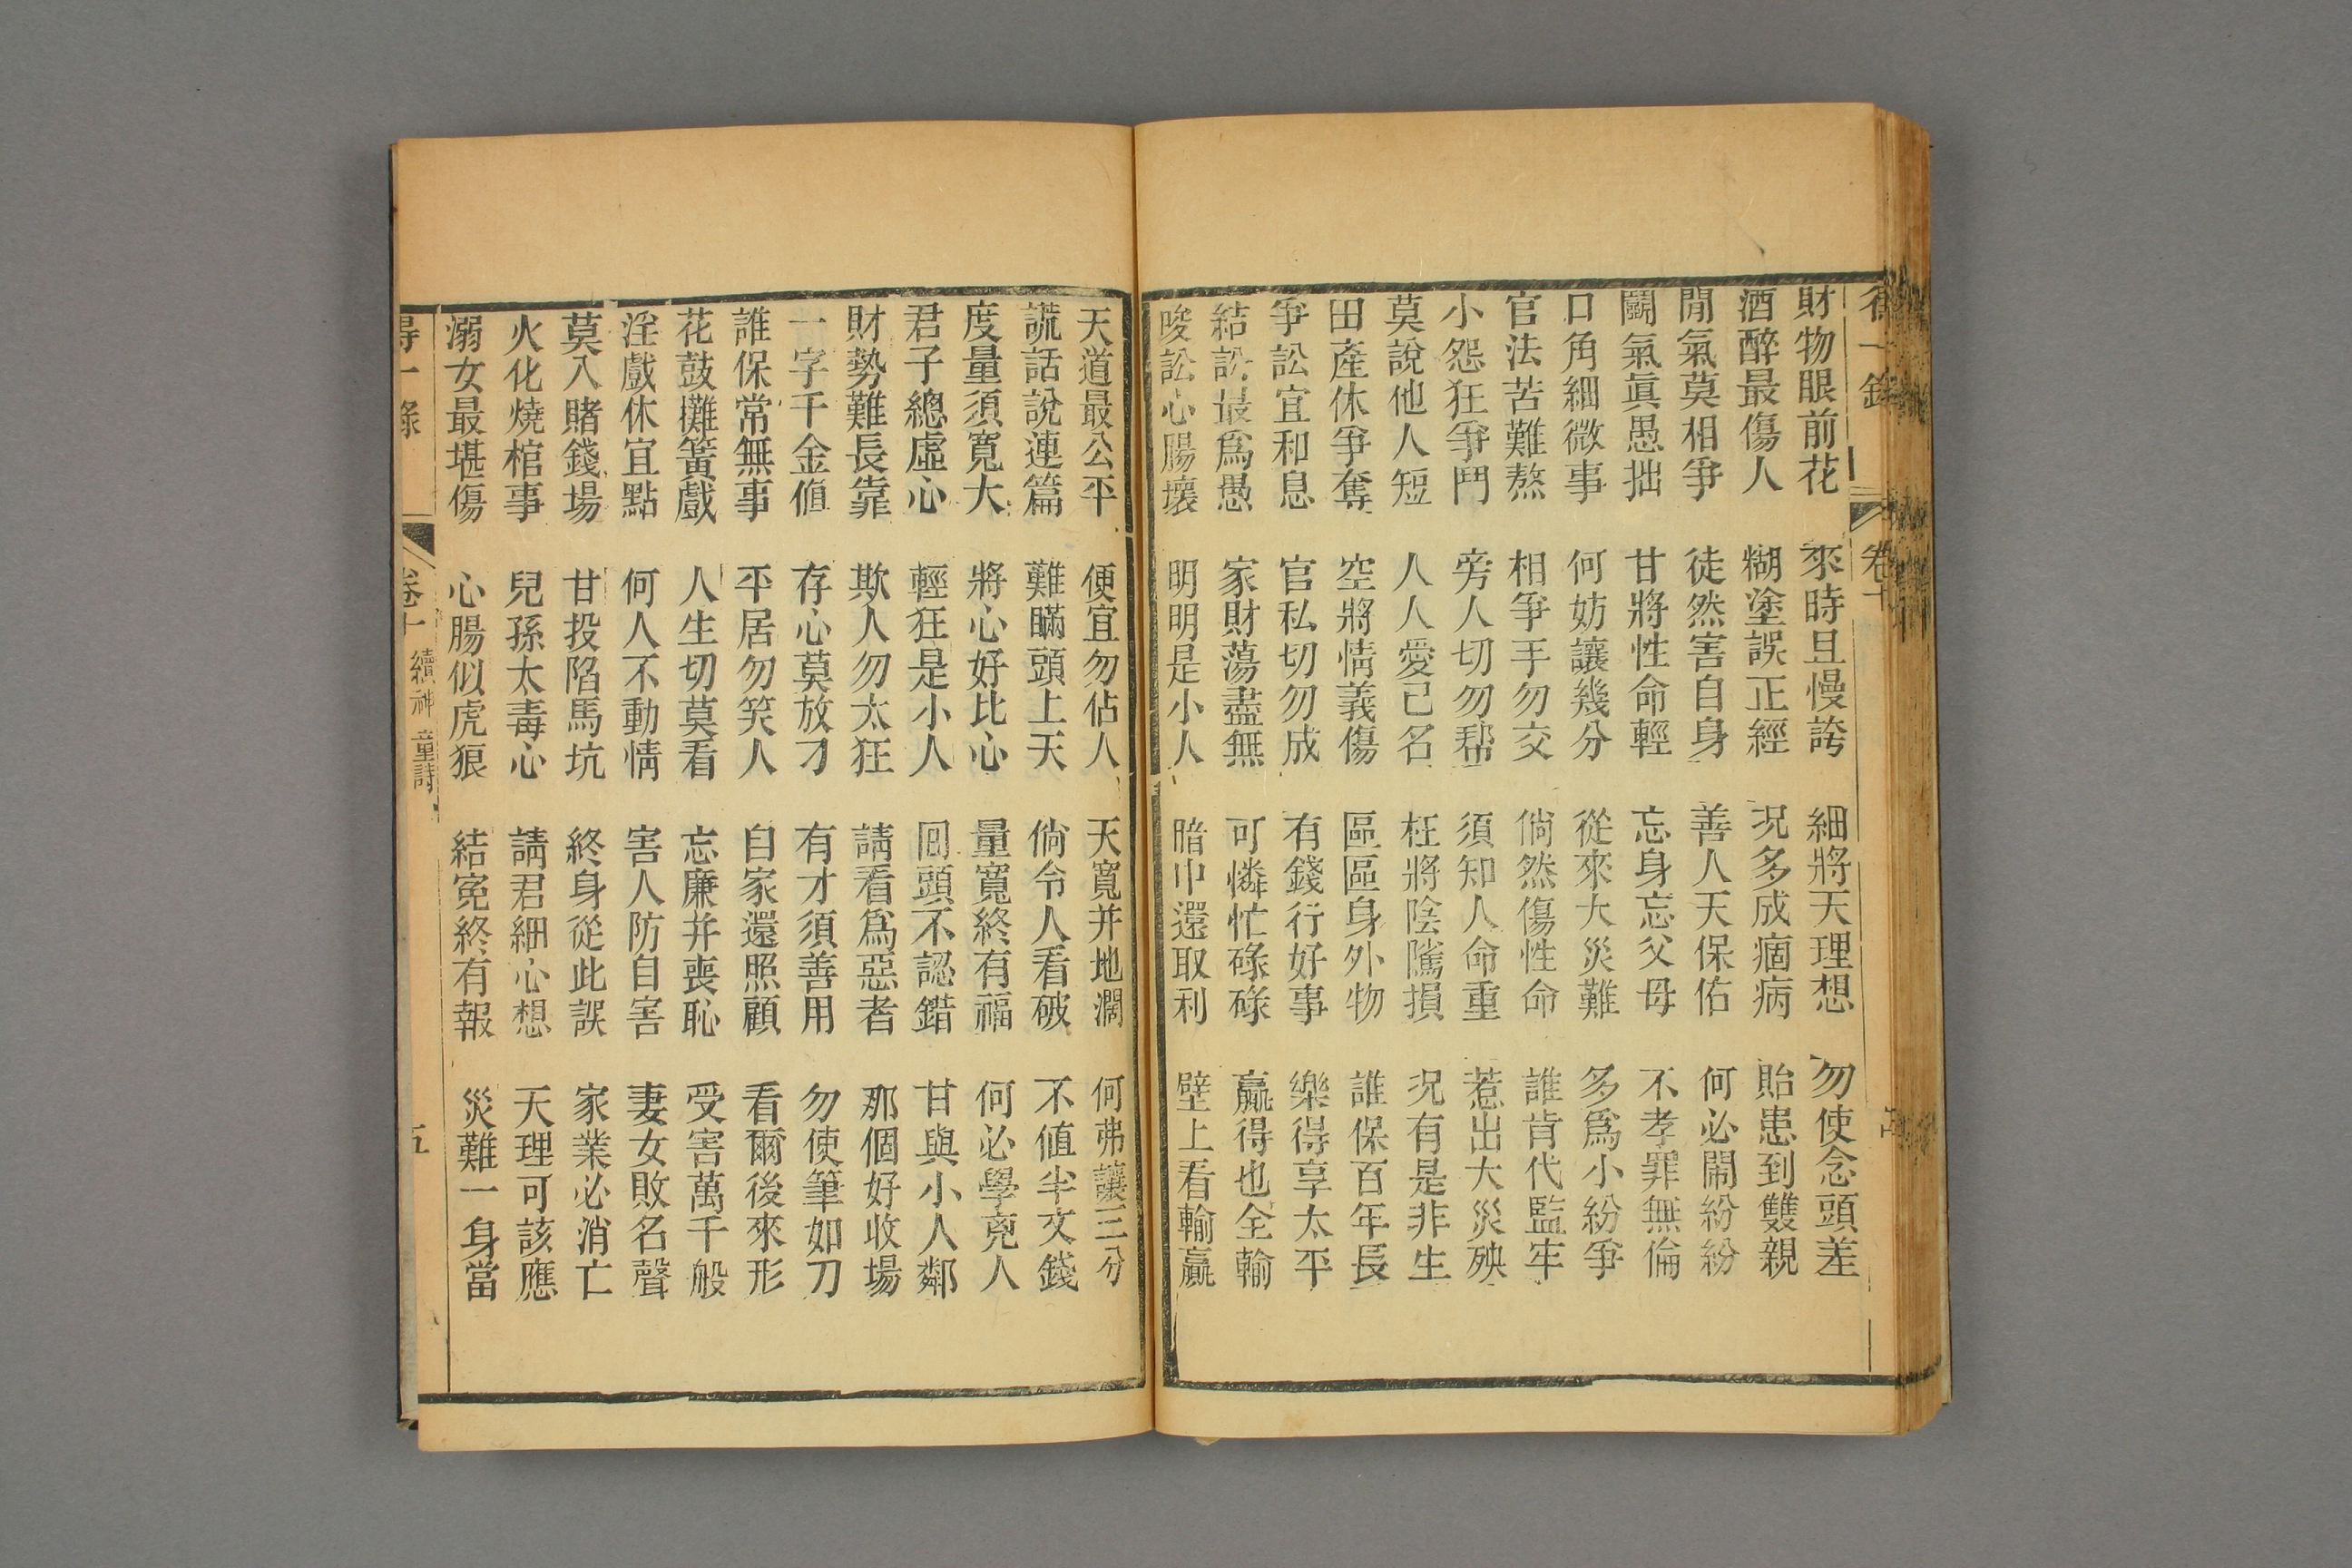 財物眼前花 來時且慢誇 細將天理想 勿使念頭差
酒醉最傷人 糊塗誤正經 况多成痼病 貽患到雙親
閒氣莫相爭 徒然害自身 善人天保佑 何必鬧紛紛
鬭氣眞愚拙 甘將性命輕 忘身忘父母 不孝罪無倫
口角細微事 何妨讓幾分 從來大災難 多爲小紛爭
官法苦難熬 相爭手勿交 倘然傷性命 誰肯代監牢
小怨狂爭鬥 旁人切勿帮 須知人命重 惹出大災殃
莫說他人短 人人愛己名 枉將陰騭損 况有是非生
田產休爭奪 空將情義傷 區區身外物 誰保百年長
爭訟宜和息 官私切勿成 有錢行好事 樂得享太平
結訟最爲愚 家財蕩盡無 可憐忙碌碌 贏得也全輸
唆訟心腸壞 明明是小人 暗中還取利 壁上看輸贏
天道最公平 便宜勿佔人 天寬并地濶 何弗讓三分
謊話說連篇 難瞞頭上天 倘令人看破 不値半文錢
度量須寬大 將心好比心 量寬終有福 何必學尅人
君子總虛心 輕狂是小人 囘頭不認錯 甘與小人鄰
財勢難長靠 欺人勿太狂 請看爲惡者 那個好收場
一字千金値 存心莫放刁 有才須善用 勿使筆如刀
誰保常無事 平居勿笑人 自家還照顧 看爾後來形
花鼓攤簧戲 人生切莫看 忘廉并喪恥 受害萬千般
淫戲休宜點 何人不動情 害人防自害 妻女敗名聲
莫入賭錢場 甘投陷馬坑 終身從此誤 家業必消亡
火化燒棺事 兒孫太毒心 請君細心想 天理可該應
溺女最堪傷 心腸似虎狼 結冤終有報 災難一身當
得一錄 卷十 續神童詩 五